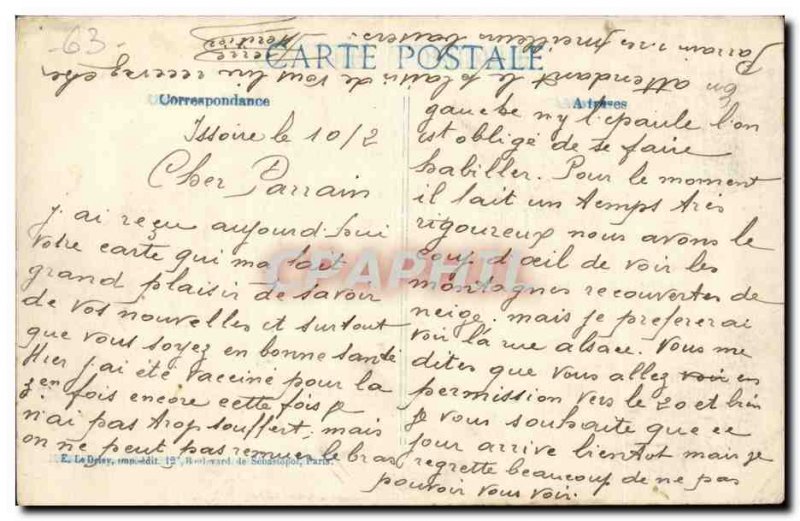 63
CARTE POSTALE
Correspondance
Adresse
Issoire le 10/2
Cher Parrain
J'ai reçu aujourd-hui
votre carte qui ma fait
grand plaisir de savoir
de vos nouvelles et surtout
que vous soyez en bonne santé
Hier j'ai été vacciné pour la
3 en fois encore cette fois je
n'ai pas trop souffert; mais
on ne peut pas remuer le bras
gauche ny l'epaule l'on
est obligé de se faire
habiller. Pour le moment
il fait un temps très
rigoureux nous avons le
coup d'œil de voir les
montagnes recouvertes de
neige. mais je prefererai
voir la rue alsace. Vous me
dites que vous allez voir en
permission vers le 20 et bien
je vous souhaite que ce
jour arrive bientot mais je
regrette beaucoup de ne pas
pouvoir vous voir.
En attendant le plaisir de vous lire recevez cher
Parrain mes meilleurs baisers.
Pierre
E. Le Deley, imp.-édit. 127, Boulevard de Sébastopol, Paris.
CPAPHIL